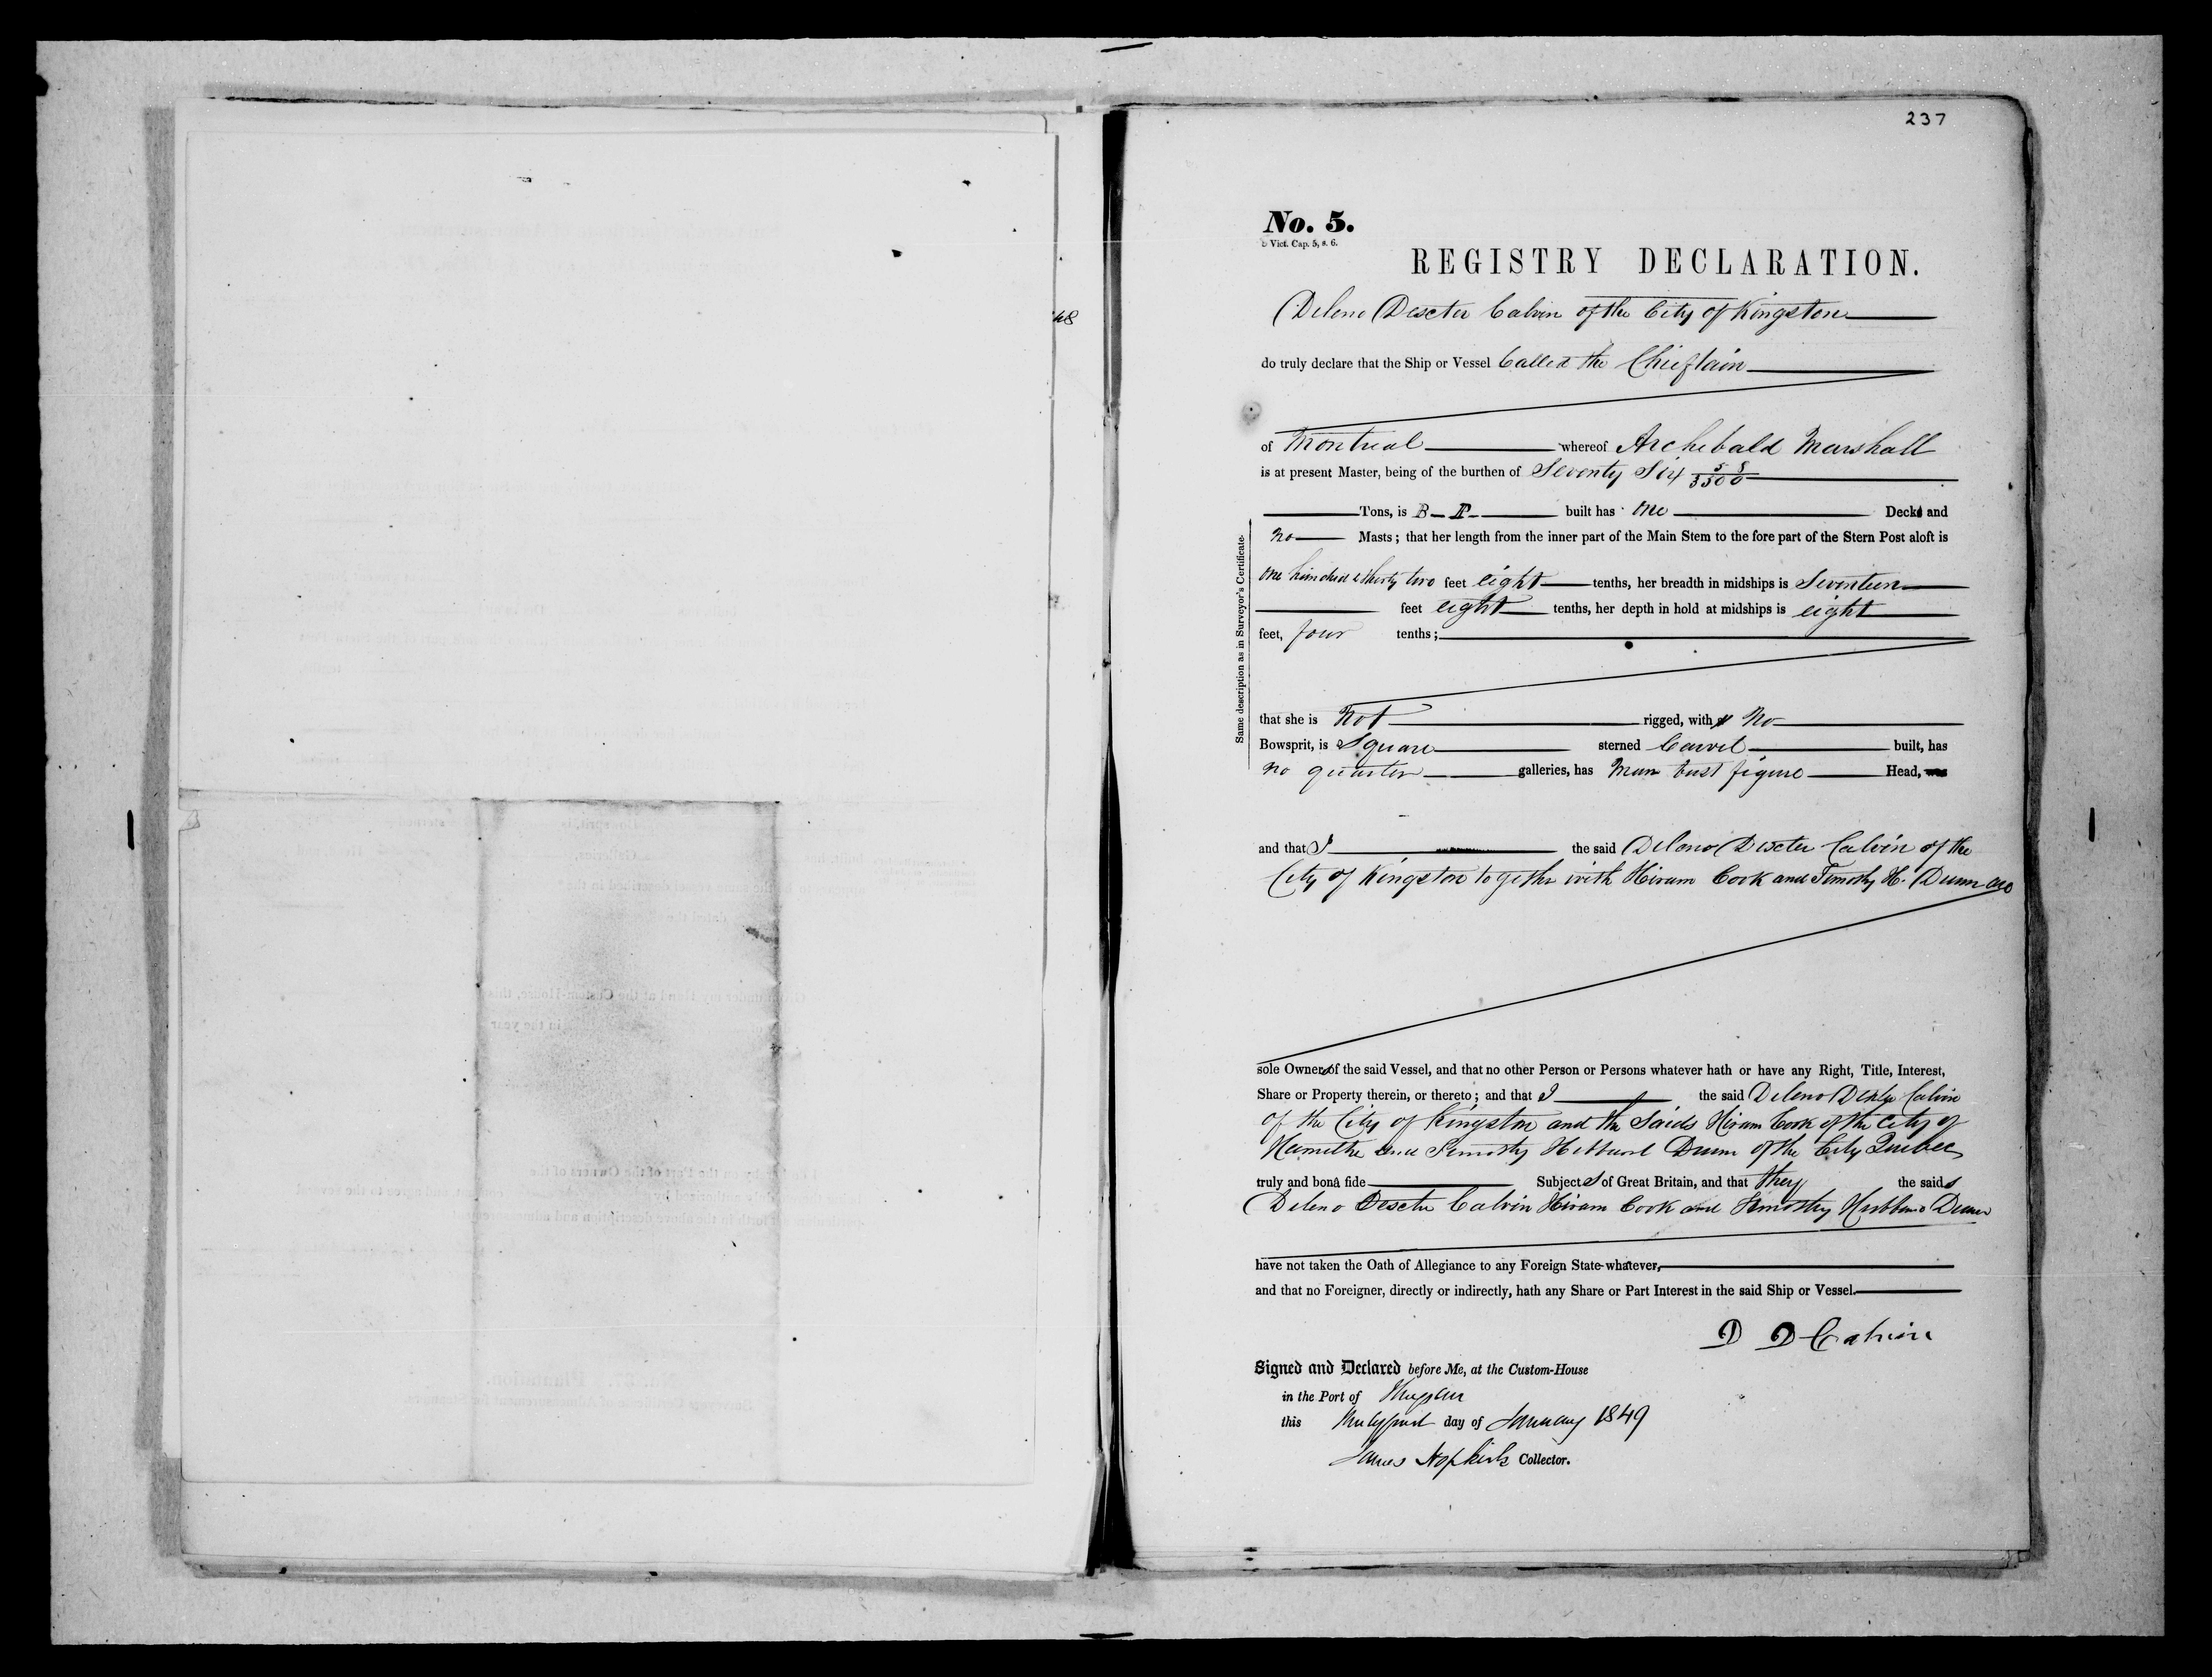 237
48
No. 5.
Vict. Cap. 5, s. 6.
REGISTRY DECLARATION.
Deleno Descter Calvin of the City of Kingston
do truly declare that the Ship or Vessel Called the Chieftain
of Montreal whereof Archebald Marshall
is at present Master, being of the burthen of Seventy Six
Tons, is built has One Deck and
no Masts; that her length from the inner part of the Main Stem to the fore part of the Stern Post aloft is
one hundred & thirty two feet eight tenths, her breadth in midships is Seventeen
feet eight tenths, her depth in hold at midships is eight
feet, four tenths;
Same description as in Surveyor's Certificate.
that she is not rigged, with no
Bowsprit, is Square sterned Carvel built, has
no quarter galleries, has Man bust figure Head,
and that I the said Deleno Descter Calvin of the
City of Kingston together with Hiram Cook and Timothy H. Dunn are
sole Owners of the said Vessel, and that no other Person or Persons whatever hath or have any Right, Title, Interest,
Share or Property therein, or thereto; and that I the said Deleno Calvin
of the City of Kingston and the Saids Hiram Cook of the City of
and Timothy Dunn of the City Quebec
truly and bonâ fide Subjects of Great Britain, and that they the saids
Deleno Descter Calvin Hiram Cook and Timothy Dunn
have not taken the Oath of Allegiance to any Foreign State whatever,
and that no Foreigner, directly or indirectly, hath any Share or Part Interest in the said Ship or Vessel.
D D Calvin
Signed and Declared before Me, at the Custom-House
in the Port of
this day of January 1849
James Hopkirk Collector.